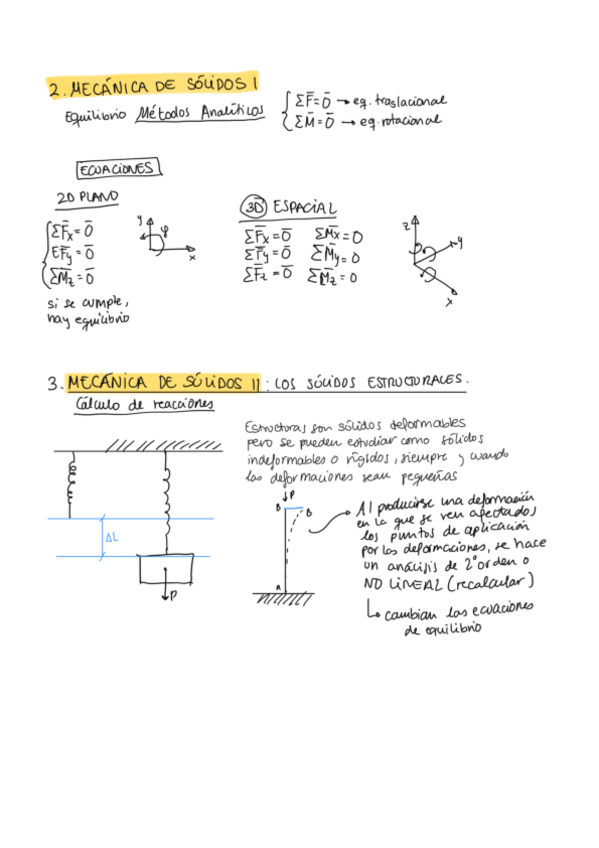 2. MECÁNICA DE SÓLIDOS I
Equilibrio Métodos Analíticos
ΣF̄=0̄ → eq. traslacional
ΣM̄=0̄ → eq. rotacional
ECUACIONES
2D PLANO
ΣF̄x = 0̄
EF̄y = 0̄
ΣM̄z = 0̄
si se cumple,
hay equilibrio
y
φ
x
3D ESPACIAL
ΣF̄x = 0̄ ΣM̄x = 0
ΣF̄y = 0̄ ΣM̄y = 0
ΣF̄z = 0̄ ΣM̄z = 0
z
y
x
3. MECÁNICA DE SÓLIDOS II: LOS SÓLIDOS ESTRUCTURALES.
Cálculo de reacciones
ΔL
P
Estructuras son sólidos deformables
pero se pueden estudiar como sólidos
indeformables o rígidos, siempre y cuando
las deformaciones sean pequeñas
P
B B
A
Al producirse una deformación
en la que se ven afectados
los puntos de aplicación
por las deformaciones, se hace
un análisis de 2º orden o
NO LINEAL (recalcular)
cambian las ecuaciones
de equilibrio